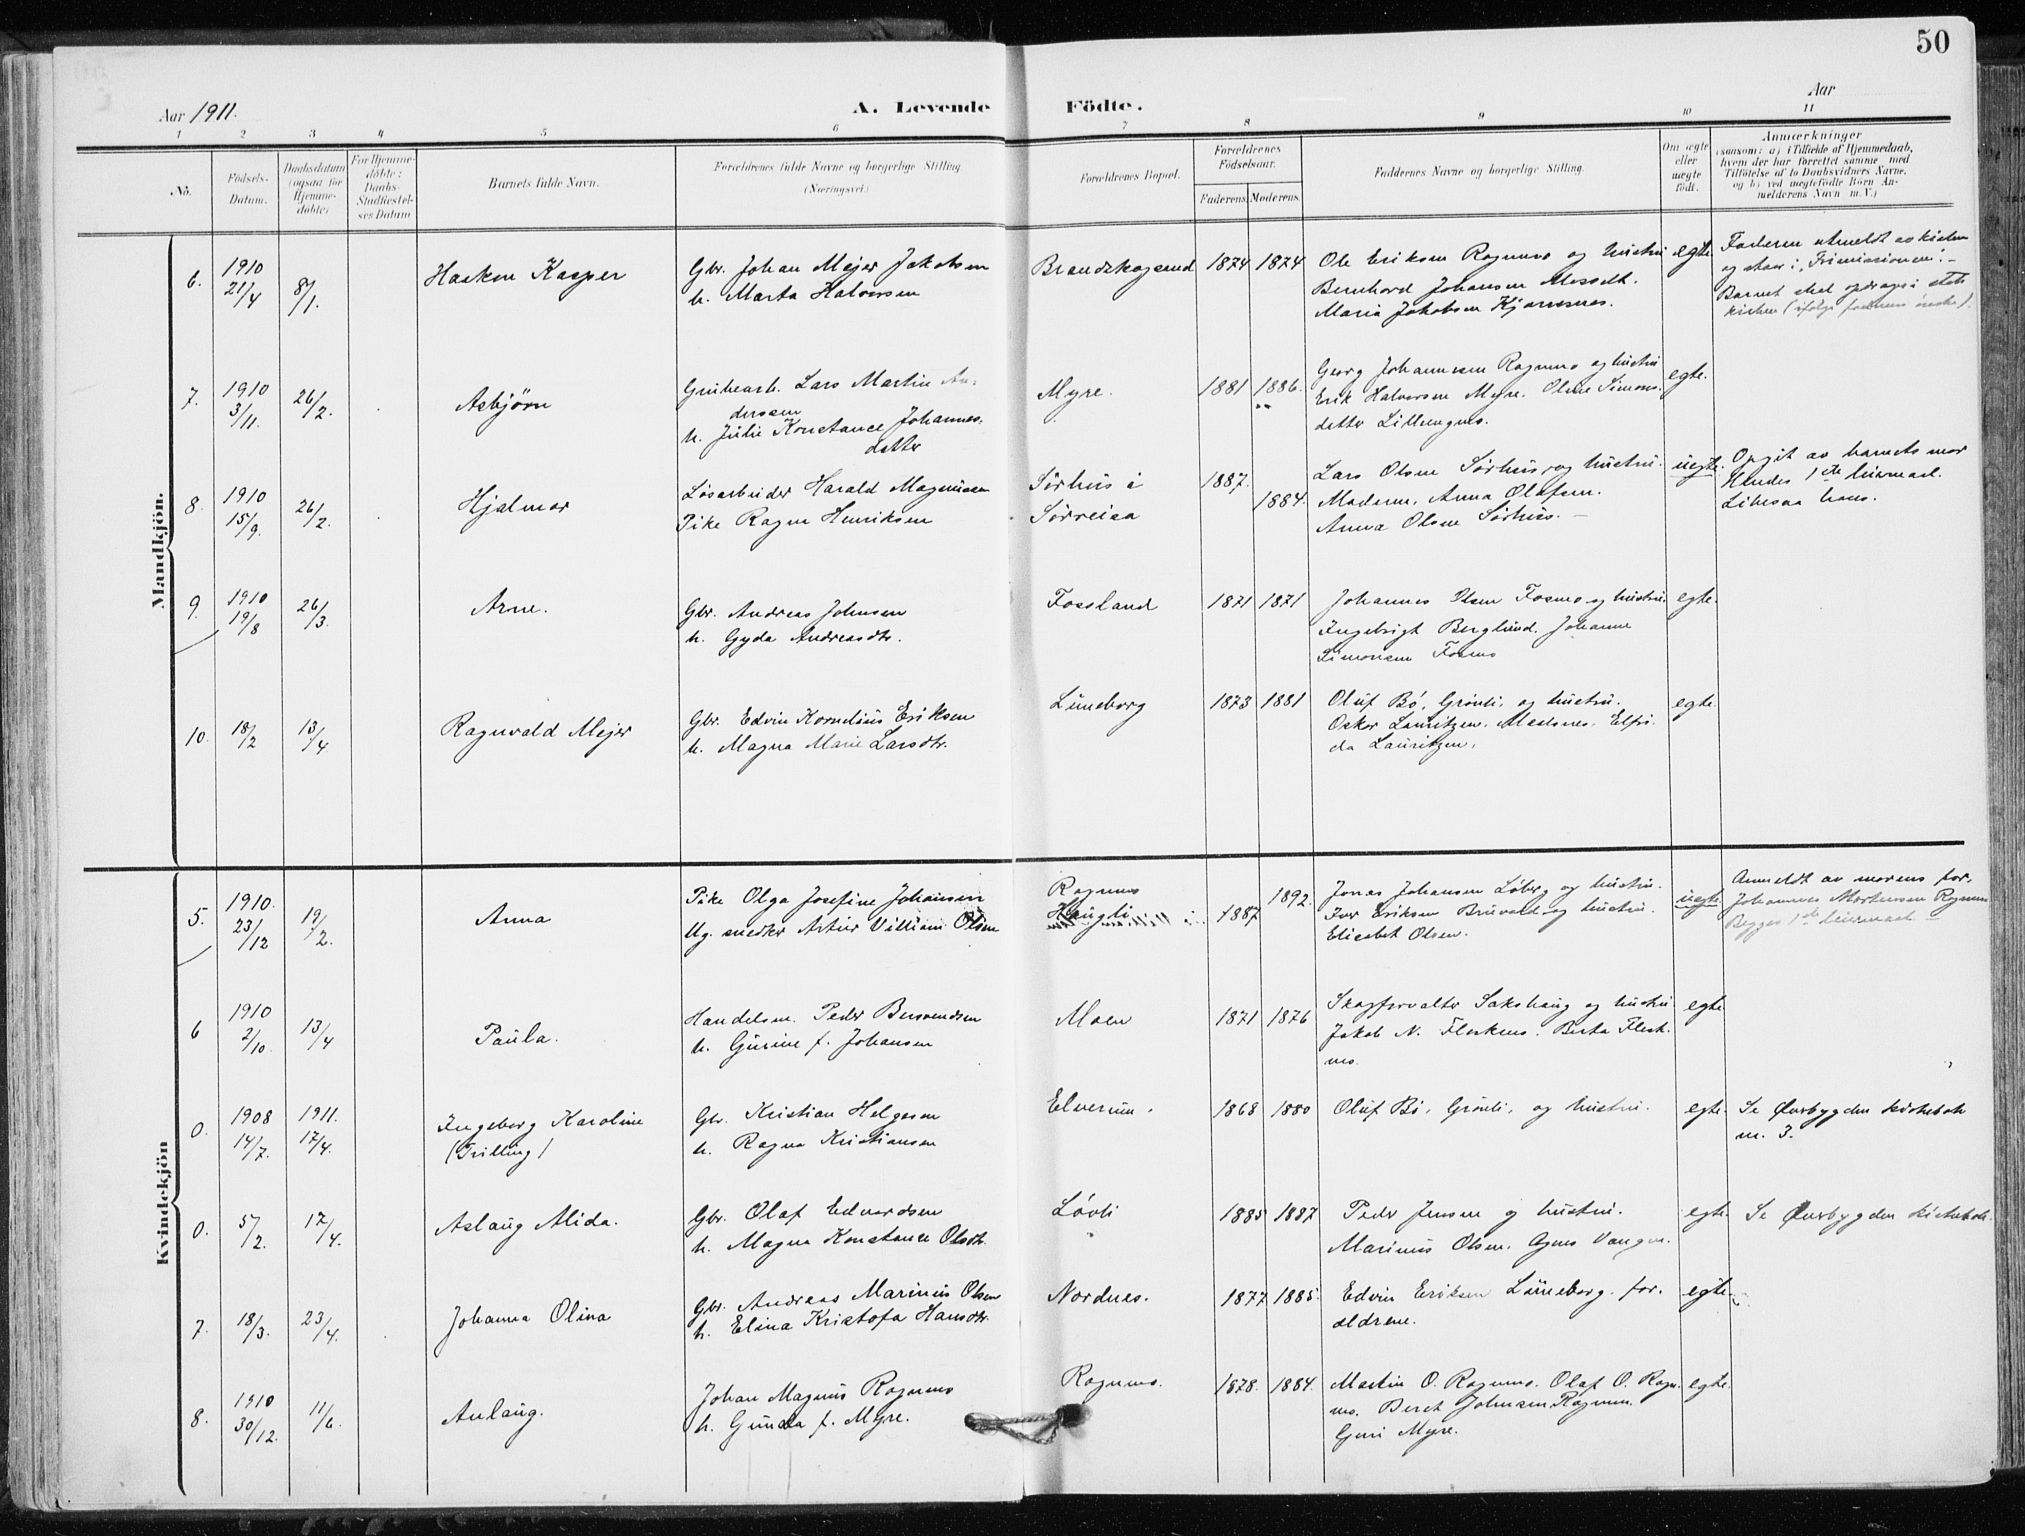 50
Aar 1911.
A. Levende Födte.
Aar
1 2 3 4 5 6 7 8 9 10 11
No.
Födsels-Datum.
Daabsdatum (ogsaa for Hjemme-döbte)
For Hjemme-döbte: Daabs-Stadfæstel-ses Datum
Barnets fulde Navn.
Forældrenes fulde Navne og borgerlige Stilling. (Næringsvei.)
Forældrenes Bopæl.
Forældrenes Födselsaar.
Faderens. Moderens.
Faddernes Navne og borgerlige Stilling.
Om ægte eller uægte födt.
Anmærkninger
(saasom: a) i Tilfælde af Hjemmedaab, hvem der har forrettet samme, med Tilföielse af to Daabsvidners Navne, og b) ved uægtefödte Börn An-melderens Navn m. V.)
Mandkjön.
6. 1910 21/4 8/1. Haakon Kasper
Gbr. Johan Mejer Jakobsen
h. Marta Halvorsen
Brandskogsund 1874 1874
Ole Eriksen Rognmo og hustru
Bernhard Johansen
Maria Jakobsen
egte.
Faderen utmeldt av kirken
og staar i „Frimissionen“.
Barnet skal opdrages i stats
kirken (ifølge faderens ønske).
7. 1910 3/11. 26/2. Asbjörn
Grubearb. Lars Martin An-
derssen
h. Julie Konstance Johannes.
datter
Myre. 1881 1886.
Georg Johannesen Rognmo og hustru
Erik Halvorsen Myre. Oline Simons.
datter
egte.
8. 1910 15/9. 26/2. Hjalmar
Løsarbeider Harald Magnussen
Pike Ragna Henriksen
Sörhus i
Sörreisa
1887. 1884.
Lars Olsen Sörhus og hustru.
Moderen, Anna Olafsen.
Anna Olsen Sörhus. –
uegte.
Opgit av barnets mor
Hendes 1ste leiermaal.
Likesaa hans.
9. 1910 19/8 26/3. Arne.
Gbr. Andreas Johnsen
h. Gyda Andreasdtr.
Fossland 1871 1871
Johannes Olsen Fosmo og hustru.
Ingebrigt Berglund. Johanne
Simonsen Fosmo
egte.
10. 18/2 13/4 Ragnvald Mejer
Gbr. Edvin Kornelius Eriksen
h. Magna Marie Larsdtr.
Lüneborg 1873 1881
Oluf Bö, Grönli, og hustru.
Oskar Lauritzen. Elfri-
da Lauritzen.
egte.
Kvindekjön
5. 1910. 23/12 19/2. Anna
Pike Olga Josefine Johansen
Ug. snedker Artur Villiam Olsen
Rognmo
Haugli
1887 1892.
Jonas Johansen Löberg og hustru.
Iver Eriksen Bruvold og hustru.
Elisabet Olsen.
uegte.
Anmeldt av morens far,
Johannes Mortensen Rognmo
Begges 1ste leiermaal –
6 1910 2/10. 13/4 Paula.
Handelsm. Peder Bersvendsen
h. Gurine f. Johansen
Moen 1871 1876
Skogforvalter Sakshaug og hustru
Jakob N. Fleskmo. Berta Flesk-
mo.
egte
0. 1908 14/7. 1911. 17/4. Ingeborg Karoline
(Trilling)
Gbr. Kristian Helgesen
h. Ragna Kristiansen
Elverum. 1868 1880
Oluf Bö, Grönli, og hustru.
egte.
Se Øverbygden kirkebok
nr. 3.
0. 5/2. 17/4. Aslaug Alida.
Gbr. Olaf Edvardsen
h. Magna Konstanse Olsdtr.
Lövli 1885 1887
Peder Jensen og hustru.
Marinus Olsen. Agnes Vangen.
egte.
Se Øverbygden kirkebok.
7. 18/3. 23/4. Johanna Olina
Gbr. Andreas Marinius Olsen
h. Elina Kristofa Hansdtr.
Nordnes. 1877 1885.
Edvin Eriksen Lüneborg. for.
ældrene.
egte
8. 1910 30/12. 11/6. Aslaug.
Johan Magnus Rognmo
h. Gunda f. Myre.
Rognmo. 1878. 1884.
Martin O. Rognmo. Olaf O. Rogn-
mo. Beret Johnsen Rognmo.
Guri Myre.
egte.